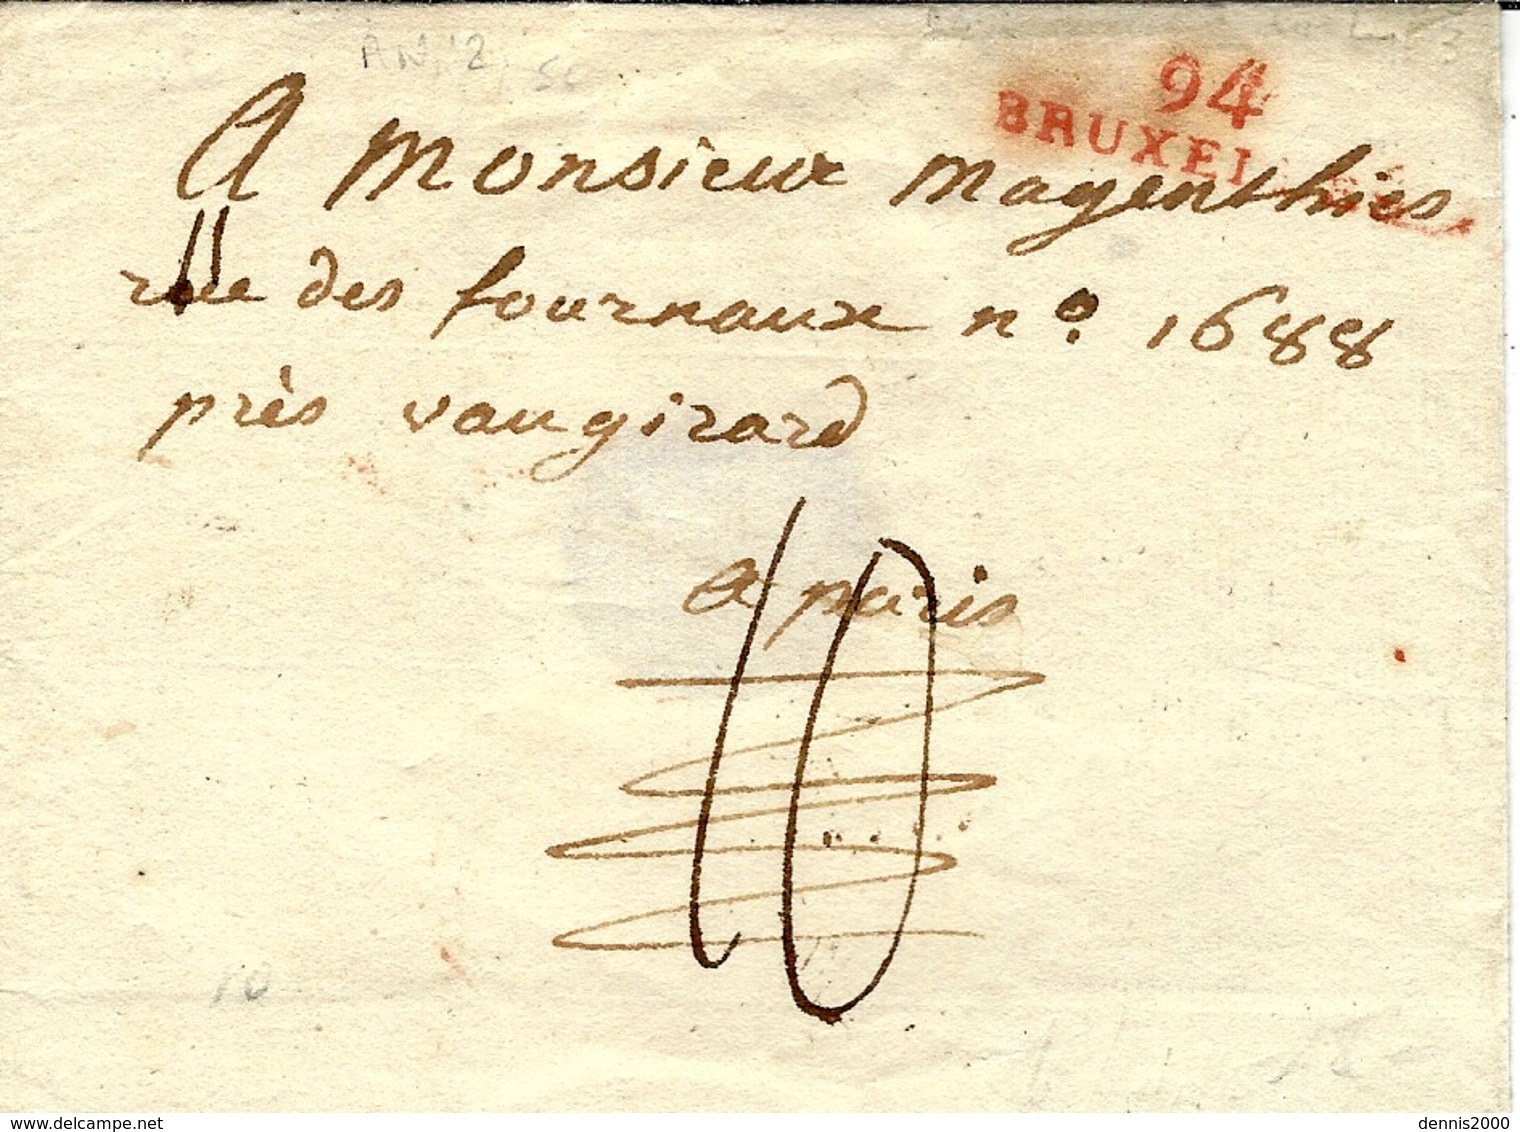 AN 12
94
BRUXELLES
A Monsieur Magenthies
rue des fournaux n.o 1688
près vaugirard
a paris
10
10
dennis2000